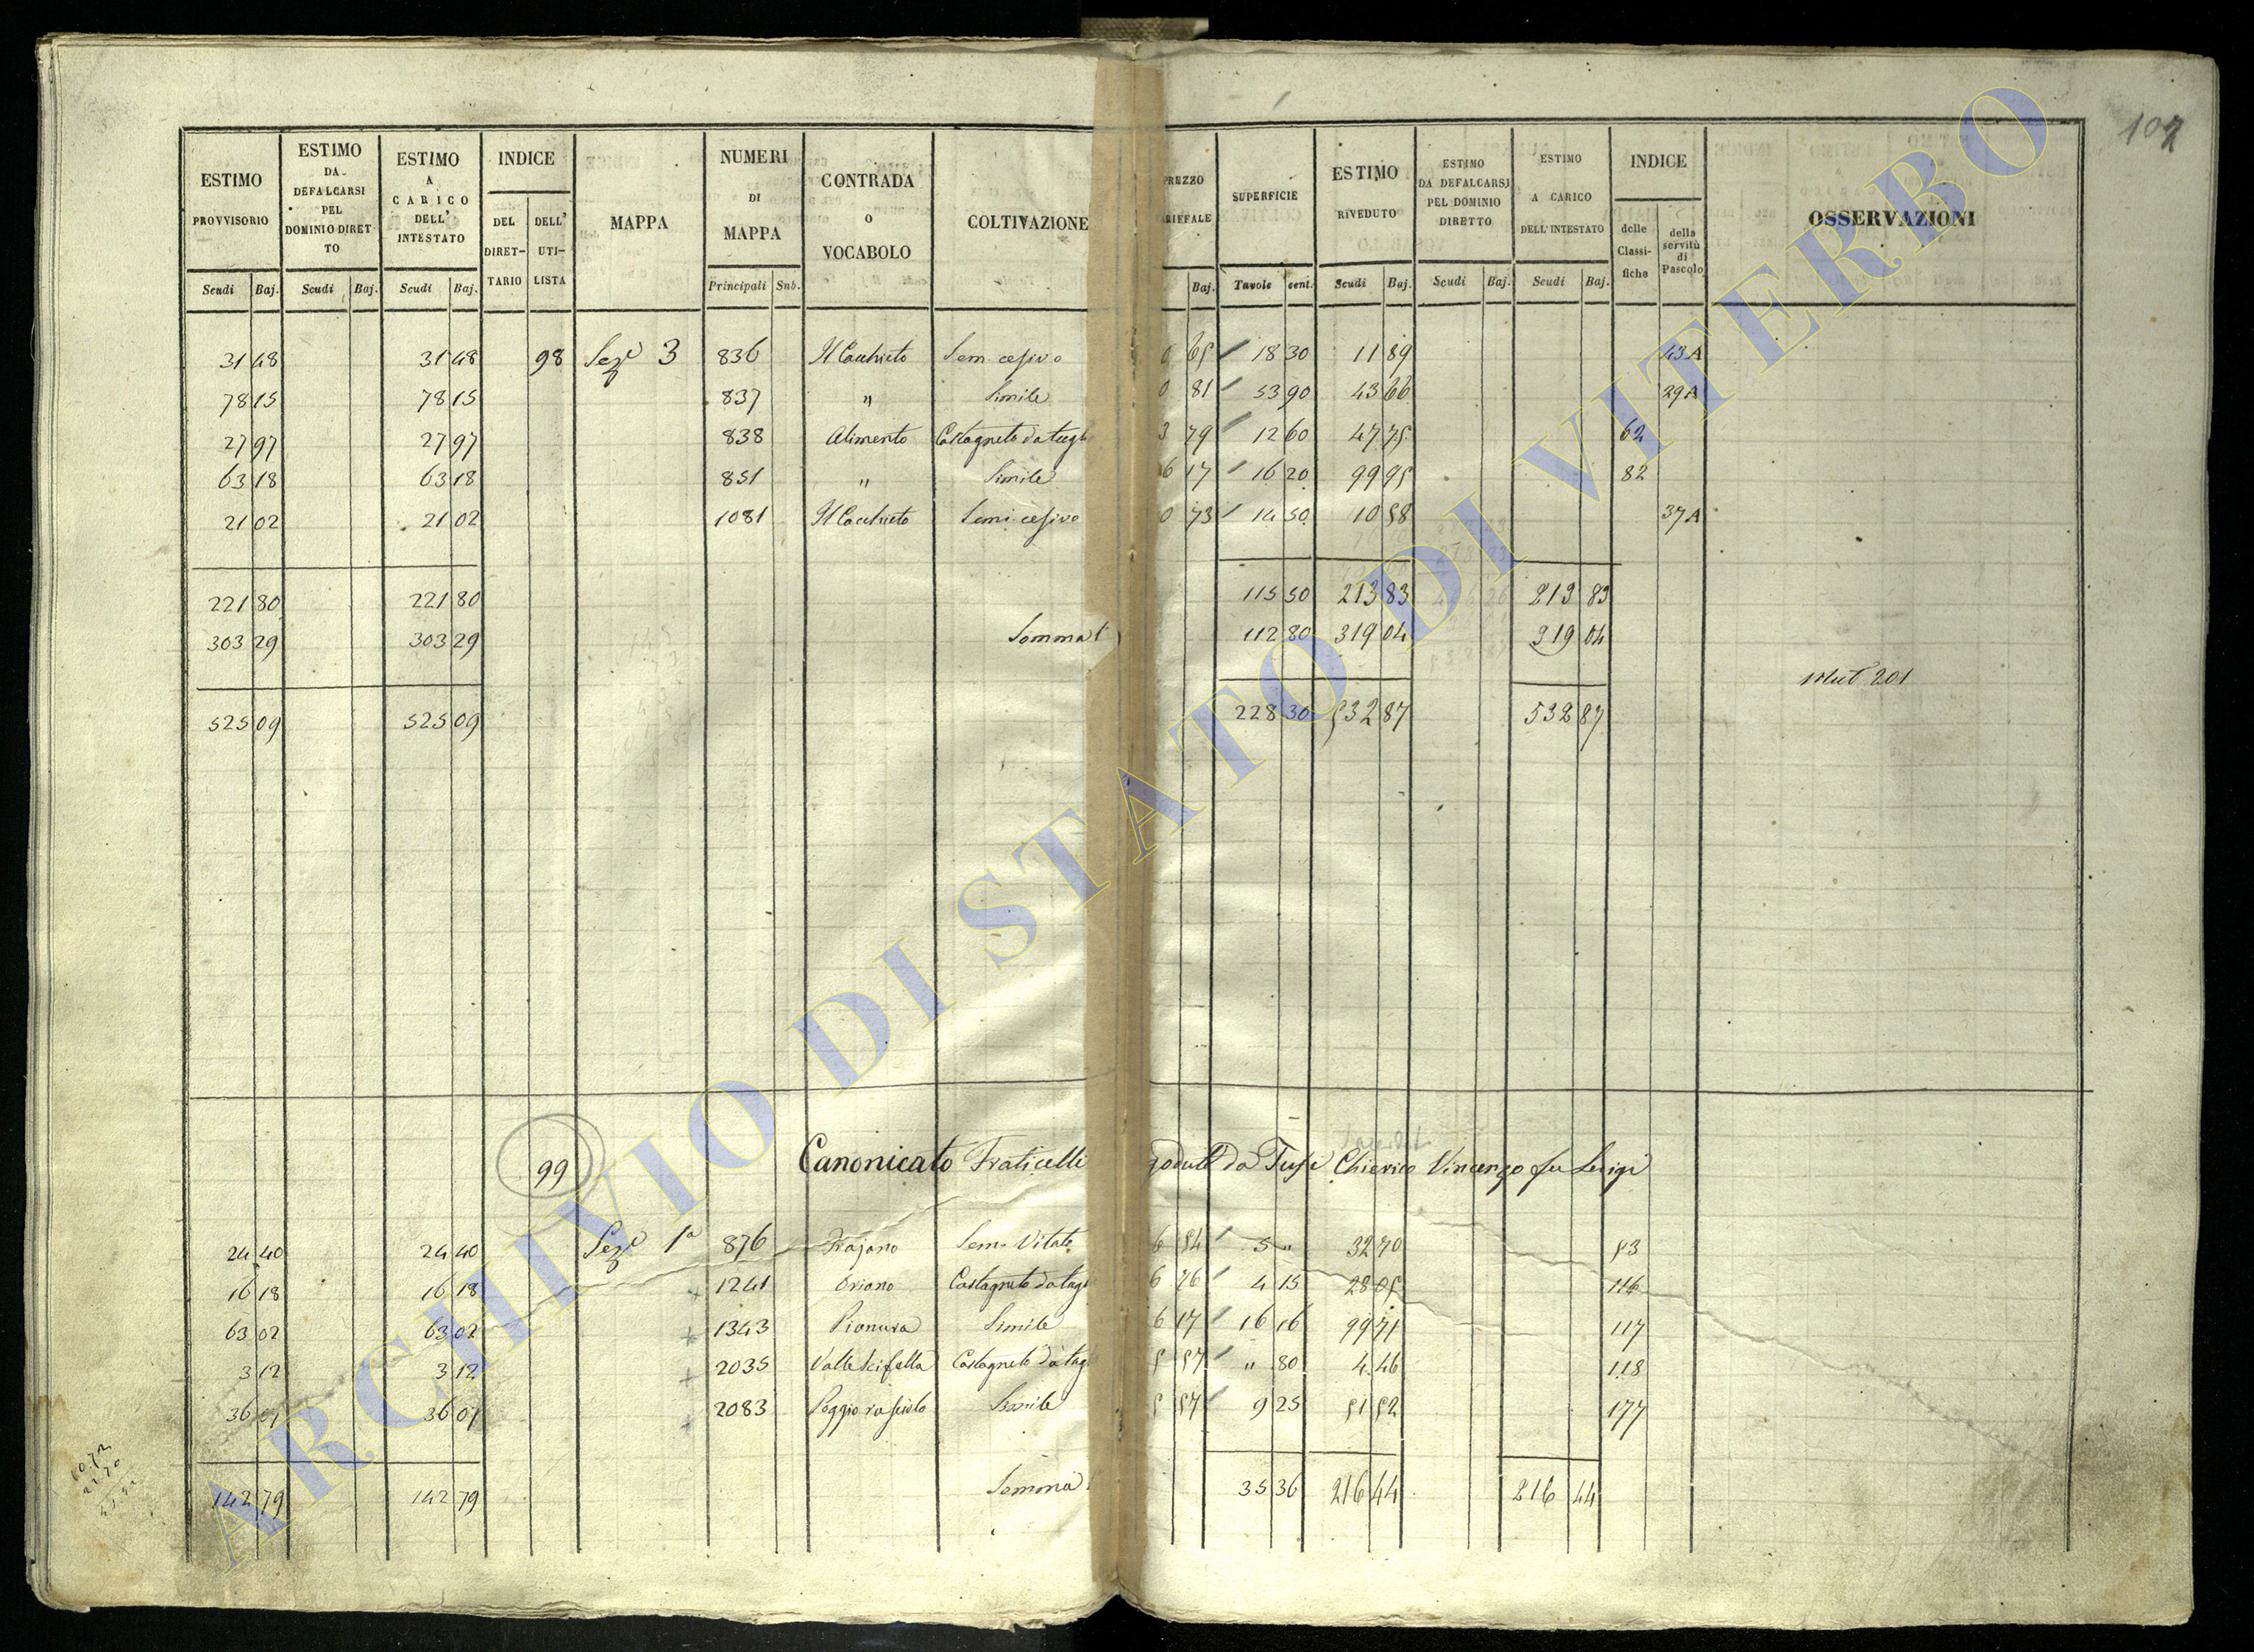 107
ESTIMO PROVVISORIO Scudi Baj.
ESTIMO DA DEFALCARSI PEL DOMINIO DIRETTO Scudi Baj.
ESTIMO A CARICO DELL' INTESTATO Scudi Baj.
INDICE DEL DIRET-TARIO DELL' UTI-LISTA
MAPPA
NUMERI DI MAPPA Principali Snb.
CONTRADA O VOCABOLO
COLTIVAZIONE
PREZZO ARIFFALE Baj.
SUPERFICIE Tavole cent.
ESTIMO RIVEDUTO Scudi Baj.
ESTIMO DA DEFALCARSI PEL DOMINIO DIRETTO Scudi Baj.
ESTIMO A CARICO DELL' INTESTATO Scudi Baj.
INDICE delle Classi-fiche della servitù di Pascolo
OSSERVAZIONI
31 48 31 48 98 Sez.e 3 836 Il Cacchieto Sem. cesivo 0 65 18 30 11 89 43A
78 15 78 15 837 " Simile 0 81 53 90 43 66 29A
27 97 27 97 838 Alimento Castagneto da tagli 3 79 12 60 47 75 62
63 18 63 18 851 " Simile 6 17 16 20 99 95 82
21 02 21 02 1081 Il Cacchieto Sem. cesivo 0 73 14 50 10 58 37A
221 80 221 80 115 50 213 83 213 83
303 29 303 29 Somma 112 80 319 04 319 04
Mut 201
525 09 525 09 228 30 532 87 532 87
99 Canonicato Fraticelli goduto da Tusi Chierico Vincenzo fu Luigi
24 40 24 40 Sez.e 1a 876 Trajano Sem. Vitato 6 54 5 " 32 70 53
16 18 16 18 1241 Oriano Castagneto da tagl 6 76 4 15 28 05 116
63 02 63 02 1343 Pianura Simile 6 17 16 16 99 71 117
3 12 3 12 2035 Valle Scifella Castagneto da tagl 5 57 " 80 4 46 118
36 07 36 07 2083 Poggio rasciolo Simile 5 57 9 25 51 52 177
142 79 142 79 Somma 35 36 216 44 216 44
ARCHIVIO DI STATO DI VITERBO